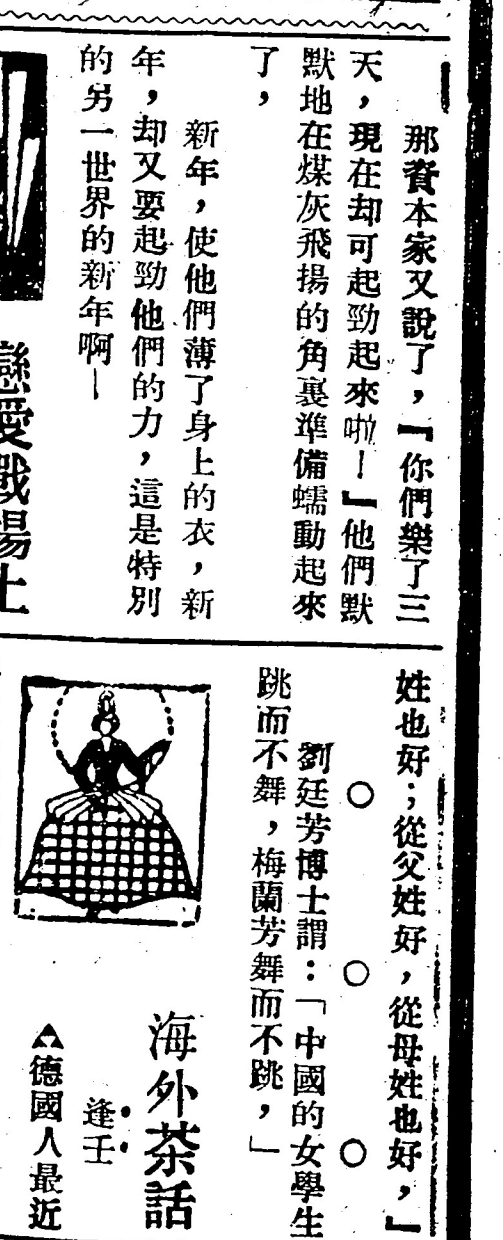 那資本家又說了，『你們樂了三
天，現在却可起勁起來啦！』他們默
默地在煤灰飛揚的角裏準備蠕動起來
了，
新年，使他們薄了身上的衣，新
年，却又要起勁他們的力，這是特別
的另一世界的新年啊！
戀愛戰場上
姓也好；從父姓好，從母姓也好，』
○　○　○
劉廷芳博士謂：「中國的女學生
跳而不舞，梅蘭芳舞而不跳，」
海外茶話
逢壬
▲德國人最近